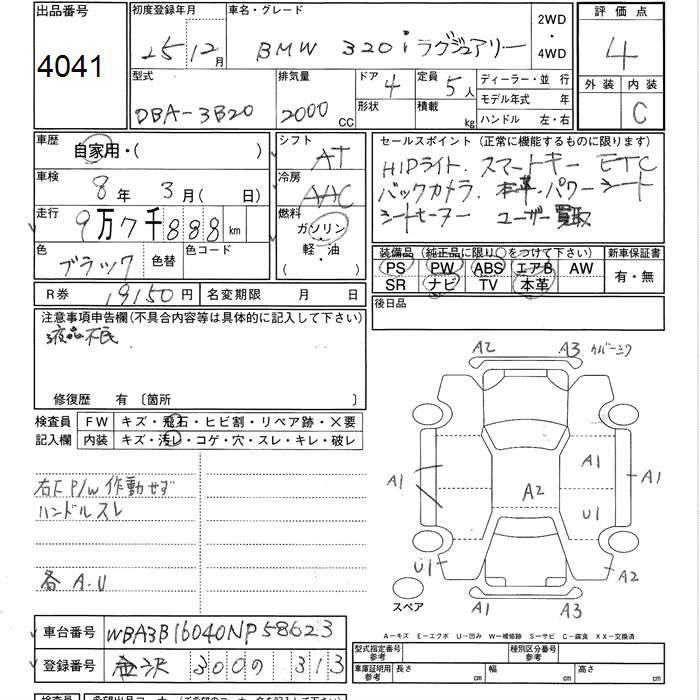 出品番号
4041
初度登録年月 25年12月
車名・グレード
BMW 320i ラグジュアリー
2WD
・
4WD
評価点
4
外装 内装
C
型式
DBA-3B20
排気量
2000 CC
ドア 4
形状
定員 5人
積載 kg
ディーラー・並行
モデル年式 年
ハンドル 左・右
車歴 自家用・( )
車検 8年 3月(日)
走行 9万7千888km
色 ブラック
色替
色コード
シフト AT
冷房 AAC
燃料
ガソリン
軽・油
( )
セールスポイント(正常に機能するものに限ります)
HIDライト. スマートキー ETC
バックカメラ. 本革・パワーシート
シートヒーター ユーザー買取
装備品(純正品に限り○をつけて下さい)
PS PW ABS エアB AW
SR ナビ TV 本革
新車保証書
有・無
R券 19150円
名変期限 月 日
後日品
注意事項申告欄(不具合内容等は具体的に記入して下さい)
液晶不良
修復歴 有 〔箇所 〕
検査員 FW キズ・飛石・ヒビ割・リペア跡・×要
記入欄 内装 キズ・汚レ・コゲ・穴・スレ・キレ・破レ
右F P/W 作動せず
ハンドルスレ
各 A.U
A2 A3
A1
A1
A1
A2
U1
U1
A2
A1 A3
スペア
A-キズ E-エクボ U-凹み W-補修跡 S-サビ C-腐食 XX-交換済
車台番号 WBA3B16040NP58623
登録番号 金沢 300の 313
型式指定番号
参考
種別区分番号
参考
車庫証明用
参考
長さ cm
幅 cm
高さ cm
検査員